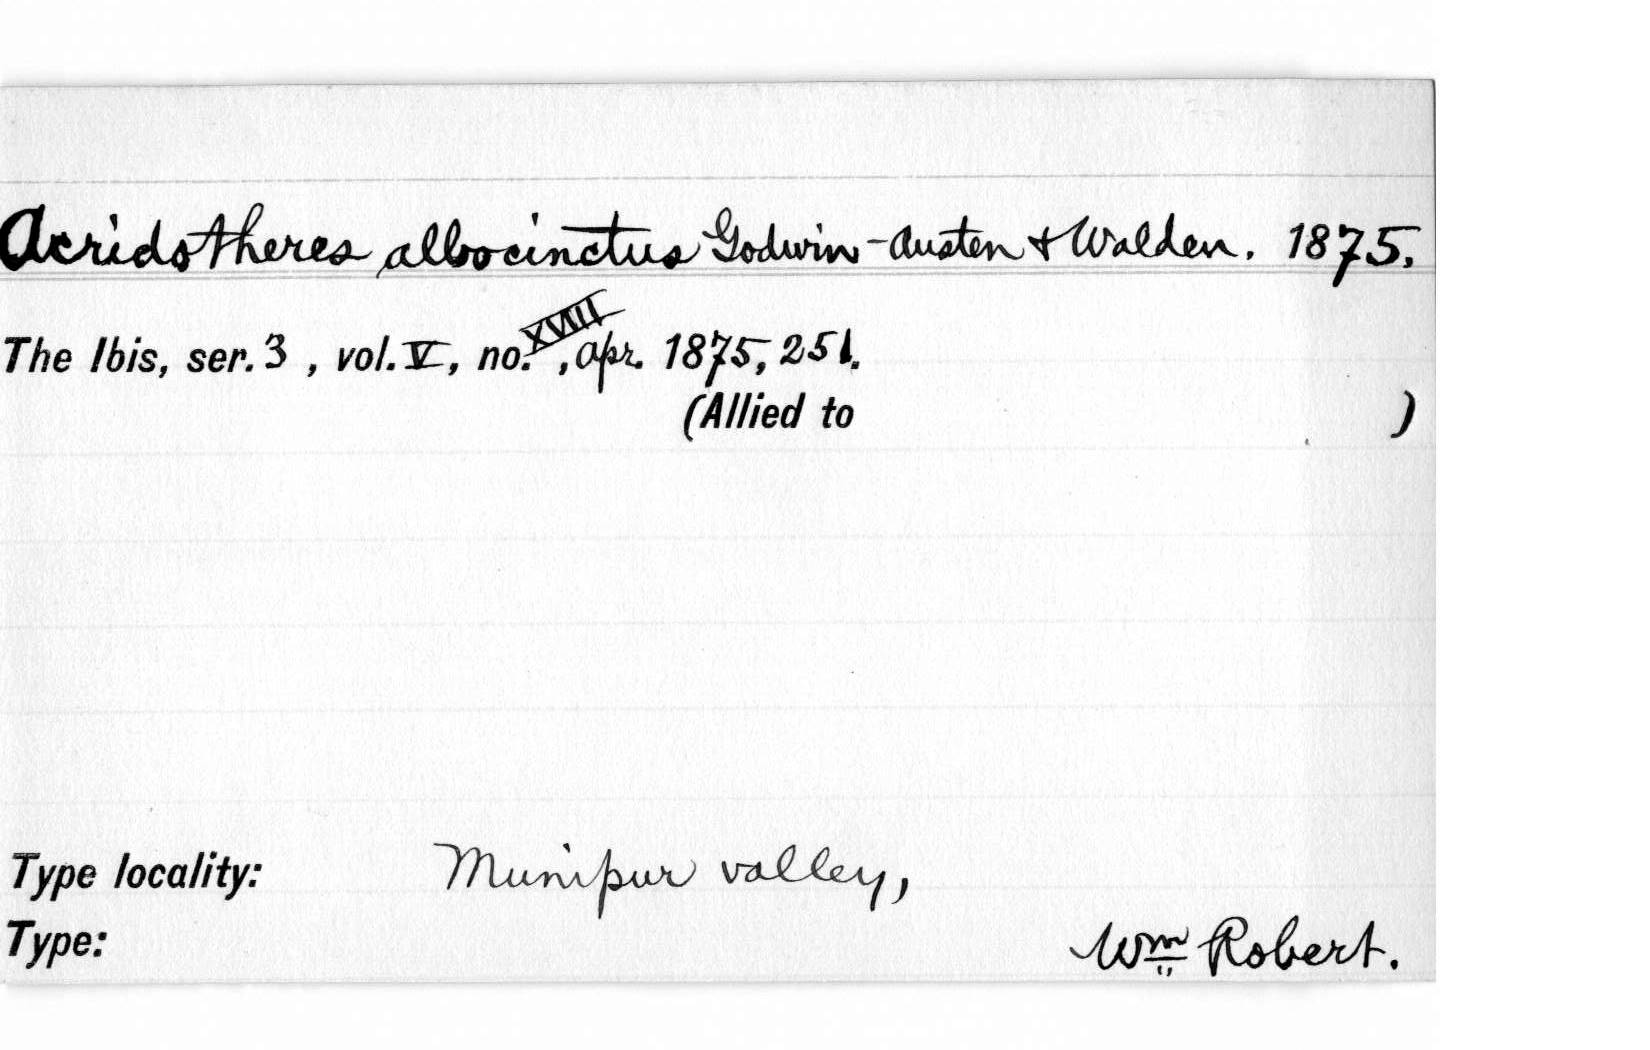 Acridotheres albocinctus Godwin-Austen & Walden. 1875.
The Ibis, ser. 3 , vol. V, no. XVIII, Apr. 1875, 251.
(Allied to )
Type locality: Munipur valley,
Type: Wm Robert.